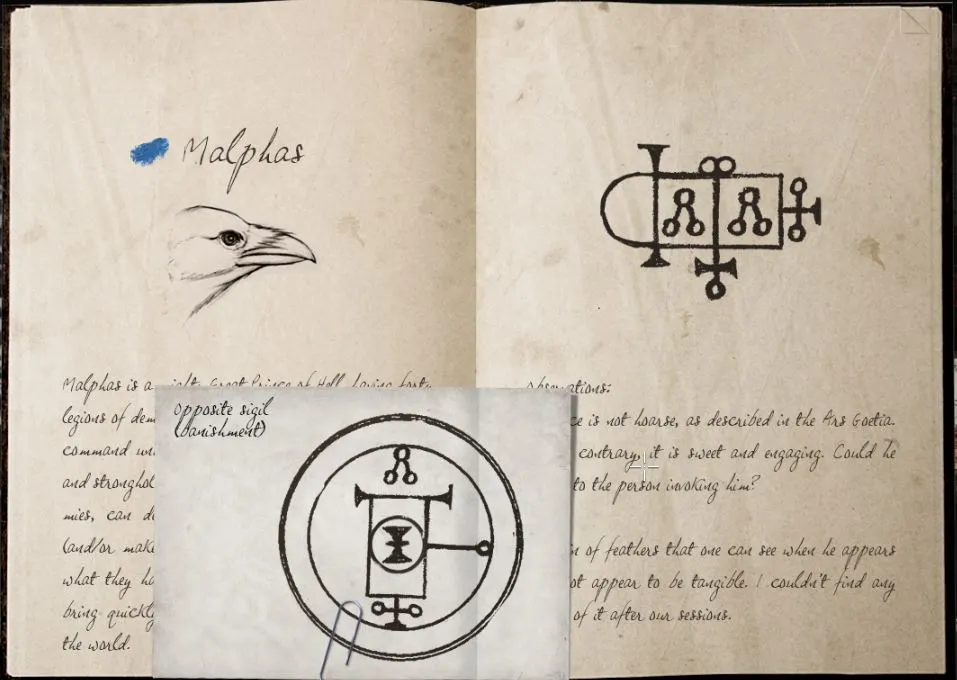 Malphas
Malphas is a mighty Great Prince of Hell, having forty
legions of dem
command un
and stronghol
mies, can d
(and/or make
what they ha
bring quickly
the world.
Opposite sigil
(banishment)
observations:
ce is not hoarse, as described in the Ars Goetia.
contrary, it is sweet and engaging. Could he
to the person invoking him?
n of feathers that one can see when he appears
ot appear to be tangible. I couldn't find any
of it after our sessions.